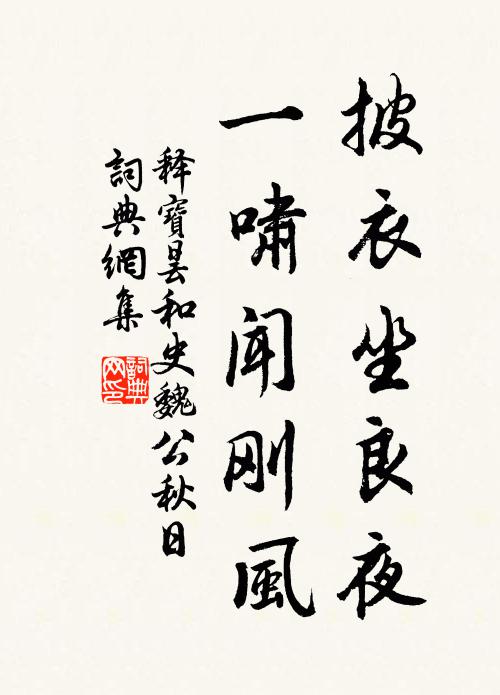 披衣坐良夜
一嘯闻刚風
释寶昙和史魏公秋日
詞典網集
詞典
网印